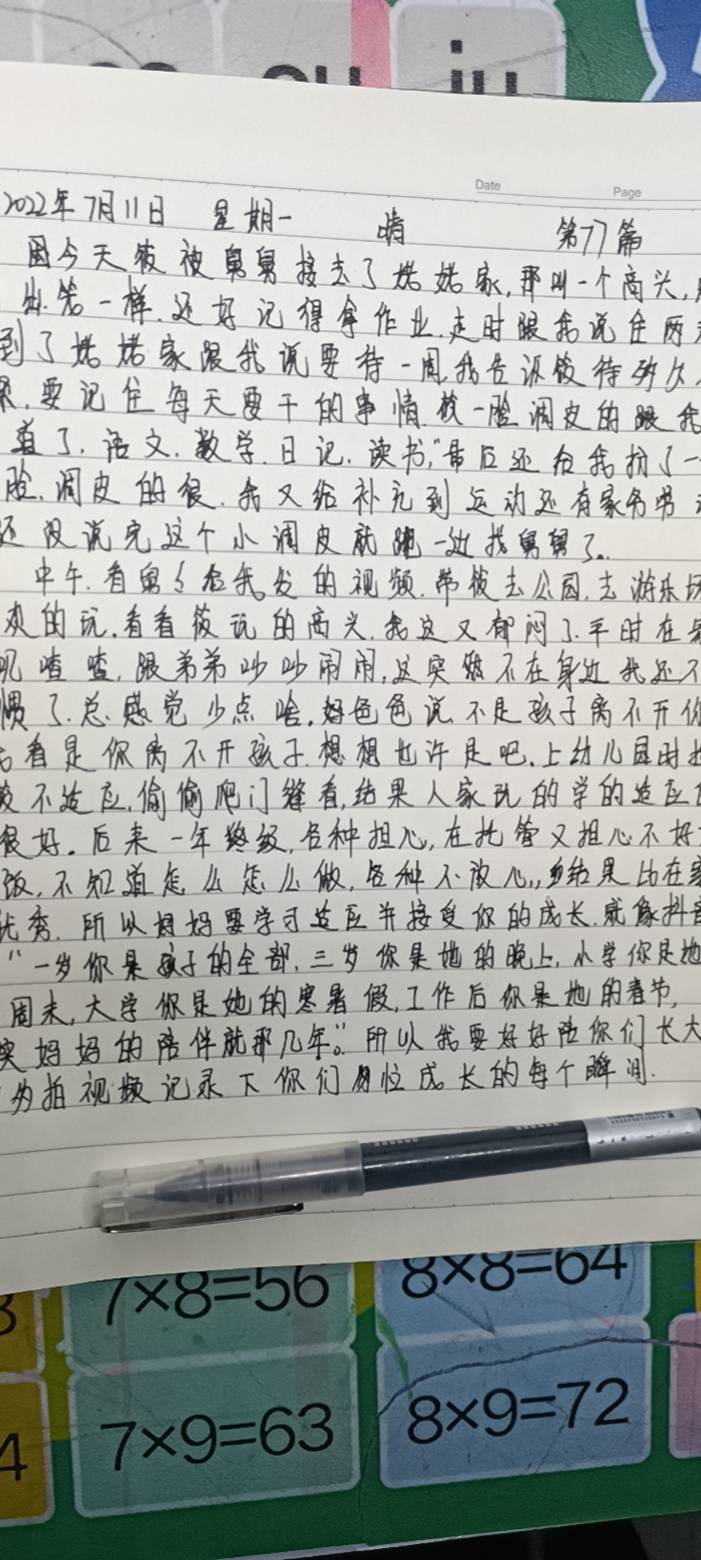 ou iu
Date Page
2022年7月11日 星期一 晴 第77篇
因今天筱被舅舅接去了姥姥家,那叫一个高兴,
出笼一样.还好记得拿作业.走时跟我说住两
到了姥姥家跟我说要待一周,我告诉筱待多久
要记住每天要干的事情.筱一脸调皮的跟我
道了.语文.数学.日记.读书,"最后还给我扮了一
脸.调皮的很.我又给补充到运动还有家务劳
还没说完这个小调皮就跑一边找舅舅了.
中午.看舅舅给我发的视频.带筱去公园.去游乐场
欢的玩.看着筱玩的高兴.我这又郁闷了.平时在
叽喳喳,跟弟弟吵吵闹闹,这突然不在身边我还不
惯了.总感觉少点啥.好色色说不是孩子离不开你
看是你离不开孩子.想想也许是吧.上幼儿园时
筱不适应,偷偷爬门缝看,结果人家玩的学的适应
很好。后来一年级,各种担心,在托管又担心不好
饭,不知道怎么怎么做,各种不放心,结果比在
优秀.所以妈妈要学习适应并接受你的成长.就像抖音
"一岁你是孩子的全部,三岁你是她的晚上,小学你是她
周末,大学你是她的寒暑假,工作后你是她的春节,
妈妈的陪伴就那几年。"所以我要好好陪你们长大
为拍视频记录下你们成长的每个瞬间.
7×8=56 8×8=64
7×9=63 8×9=72